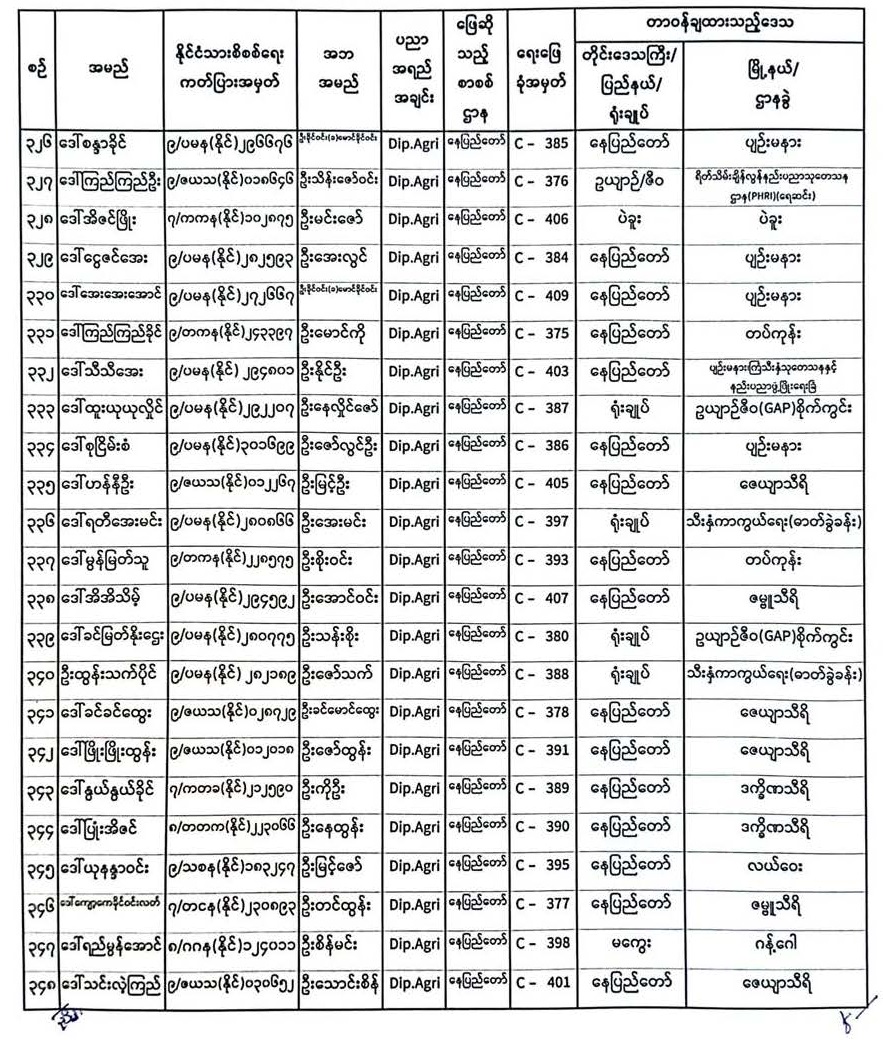 စဉ် အမည် နိုင်ငံသားစိစစ်ရေး ကတ်ပြားအမှတ် အဘ အမည် ပညာ အရည် အချင်း ဖြေဆို သည့် စာစစ် ဌာန ရေးဖြေ ခုံအမှတ် တာဝန်ချထားသည့်ဒေသ
တိုင်းဒေသကြီး/ ပြည်နယ်/ ရုံးချုပ် မြို့နယ်/ ဌာနခွဲ
၃၂၆ ဒေါ်စန္ဒာခိုင် ၉/ပမန(နိုင်)၂၉၆၆၇၆ ဦးခိုင်ဝင်း(ခ)မောင်ခိုင်ဝင်း Dip.Agri နေပြည်တော် C - 385 နေပြည်တော် ပျဉ်းမနား
၃၂၇ ဒေါ်ကြည်ကြည်ဦး ၉/ဇယသ(နိုင်)၀၁၈၆၄၆ ဦးသိန်းဇော်ဝင်း Dip.Agri နေပြည်တော် C - 376 ဥယျာဉ်/ဇီဝ ရိတ်သိမ်းချိန်လွန်နည်းပညာသုတေသန ဌာန(PHRI)(ရေဆင်း)
၃၂၈ ဒေါ်အိဇင်ဖြိုး ၇/ကကန(နိုင်)၁၀၂၈၇၅ ဦးမင်းဇော် Dip.Agri နေပြည်တော် C - 406 ပဲခူး ပဲခူး
၃၂၉ ဒေါ်ငွေဇင်အေး ၉/ပမန(နိုင်)၂၈၂၅၉၃ ဦးအေးလွင် Dip.Agri နေပြည်တော် C - 384 နေပြည်တော် ပျဉ်းမနား
၃၃၀ ဒေါ်အေးအေးအောင် ၉/ပမန(နိုင်)၂၇၂၆၆၇ ဦးခိုင်ဝင်း(ခ)မောင်ခိုင်ဝင်း Dip.Agri နေပြည်တော် C - 409 နေပြည်တော် ပျဉ်းမနား
၃၃၁ ဒေါ်ကြည်ကြည်ခိုင် ၉/တကန(နိုင်)၂၄၃၃၉၇ ဦးမောင်ကို Dip.Agri နေပြည်တော် C - 375 နေပြည်တော် တပ်ကုန်း
၃၃၂ ဒေါ်သီသီအေး ၉/ပမန(နိုင်) ၂၉၄၈၀၁ ဦးနိုင်ဦး Dip.Agri နေပြည်တော် C - 403 နေပြည်တော် ပျဉ်းမနားကြံသီးနှံသုတေသနနှင့် နည်းပညာဖွံ့ဖြိုးရေးခြံ
၃၃၃ ဒေါ်ထူးယုယုလှိုင် ၉/ပမန(နိုင်)၂၉၂၂၀၇ ဦးနေလှိုင်ဇော် Dip.Agri နေပြည်တော် C - 387 ရုံးချုပ် ဥယျာဉ်ဇီဝ(GAP)စိုက်ကွင်း
၃၃၄ ဒေါ်စုငြိမ်းစံ ၉/ပမန(နိုင်)၃၀၁၆၉၉ ဦးဇော်လွင်ဦး Dip.Agri နေပြည်တော် C - 386 နေပြည်တော် ပျဉ်းမနား
၃၃၅ ဒေါ်ဟန်နီဦး ၉/ဇယသ(နိုင်)၀၁၂၂၆၇ ဦးမြင့်ဦး Dip.Agri နေပြည်တော် C - 405 နေပြည်တော် ဇေယျာသီရိ
၃၃၆ ဒေါ်ရတီအေးမင်း ၉/ပမန(နိုင်)၂၈၀၈၆၆ ဦးအေးမင်း Dip.Agri နေပြည်တော် C - 397 ရုံးချုပ် သီးနှံကာကွယ်ရေး(ဓာတ်ခွဲခန်း)
၃၃၇ ဒေါ်မွန်မြတ်သူ ၉/တကန(နိုင်)၂၂၈၅၇၅ ဦးစိုးဝင်း Dip.Agri နေပြည်တော် C - 393 နေပြည်တော် တပ်ကုန်း
၃၃၈ ဒေါ်အိအိသိမ့် ၉/ပမန(နိုင်)၂၉၄၅၉၂ ဦးအောင်ဝင်း Dip.Agri နေပြည်တော် C - 407 နေပြည်တော် ဇမ္ဗူသီရိ
၃၃၉ ဒေါ်ခင်မြတ်နိုးဌေး ၉/ပမန(နိုင်)၂၈၀၇၇၅ ဦးသန်းစိုး Dip.Agri နေပြည်တော် C - 380 ရုံးချုပ် ဥယျာဉ်ဇီဝ(GAP)စိုက်ကွင်း
၃၄၀ ဦးထွန်းသက်ပိုင် ၉/ပမန(နိုင်) ၂၈၂၁၈၉ ဦးဇော်သက် Dip.Agri နေပြည်တော် C - 388 ရုံးချုပ် သီးနှံကာကွယ်ရေး(ဓာတ်ခွဲခန်း)
၃၄၁ ဒေါ်ခင်ခင်ထွေး ၉/ဇယသ(နိုင်)၀၂၈၇၂၉ ဦးခင်မောင်ထွေး Dip.Agri နေပြည်တော် C - 378 နေပြည်တော် ဇေယျာသီရိ
၃၄၂ ဒေါ်ဖြိုးဖြိုးထွန်း ၉/ဇယသ(နိုင်)၀၁၂၀၁၈ ဦးဇော်ထွန်း Dip.Agri နေပြည်တော် C - 391 နေပြည်တော် ဇေယျာသီရိ
၃၄၃ ဒေါ်နွယ်နွယ်ခိုင် ၇/ကတခ(နိုင်)၂၁၂၅၉၀ ဦးကိုဦး Dip.Agri နေပြည်တော် C - 389 နေပြည်တော် ဒက္ခိဏသီရိ
၃၄၄ ဒေါ်ပြုံးအိဇင် ၈/တတက(နိုင်)၂၂၃၀၆၆ ဦးနေထွန်း Dip.Agri နေပြည်တော် C - 390 နေပြည်တော် ဒက္ခိဏသီရိ
၃၄၅ ဒေါ်ယုနန္ဒာဝင်း ၉/သစန(နိုင်)၁၈၃၂၄၇ ဦးမြင့်ဇော် Dip.Agri နေပြည်တော် C - 395 နေပြည်တော် လယ်ဝေး
၃၄၆ ၇/တငန(နိုင်)၂၃၀၈၉၃ ဦးတင်ထွန်း Dip.Agri နေပြည်တော် C - 377 နေပြည်တော် ဇမ္ဗူသီရိ
၃၄၇ ဒေါ်ရည်မွန်အောင် ၈/ဂဂန(နိုင်)၁၂၄၀၁၁ ဦးစိန်မင်း Dip.Agri နေပြည်တော် C - 398 မကွေး ဂန့်ဂေါ
၃၄၈ ဒေါ်သင်းလဲ့ကြည် ၉/ဇယသ(နိုင်)၀၃၀၆၅၂ ဦးသောင်းစိန် Dip.Agri နေပြည်တော် C - 401 နေပြည်တော် ဇေယျာသီရိ